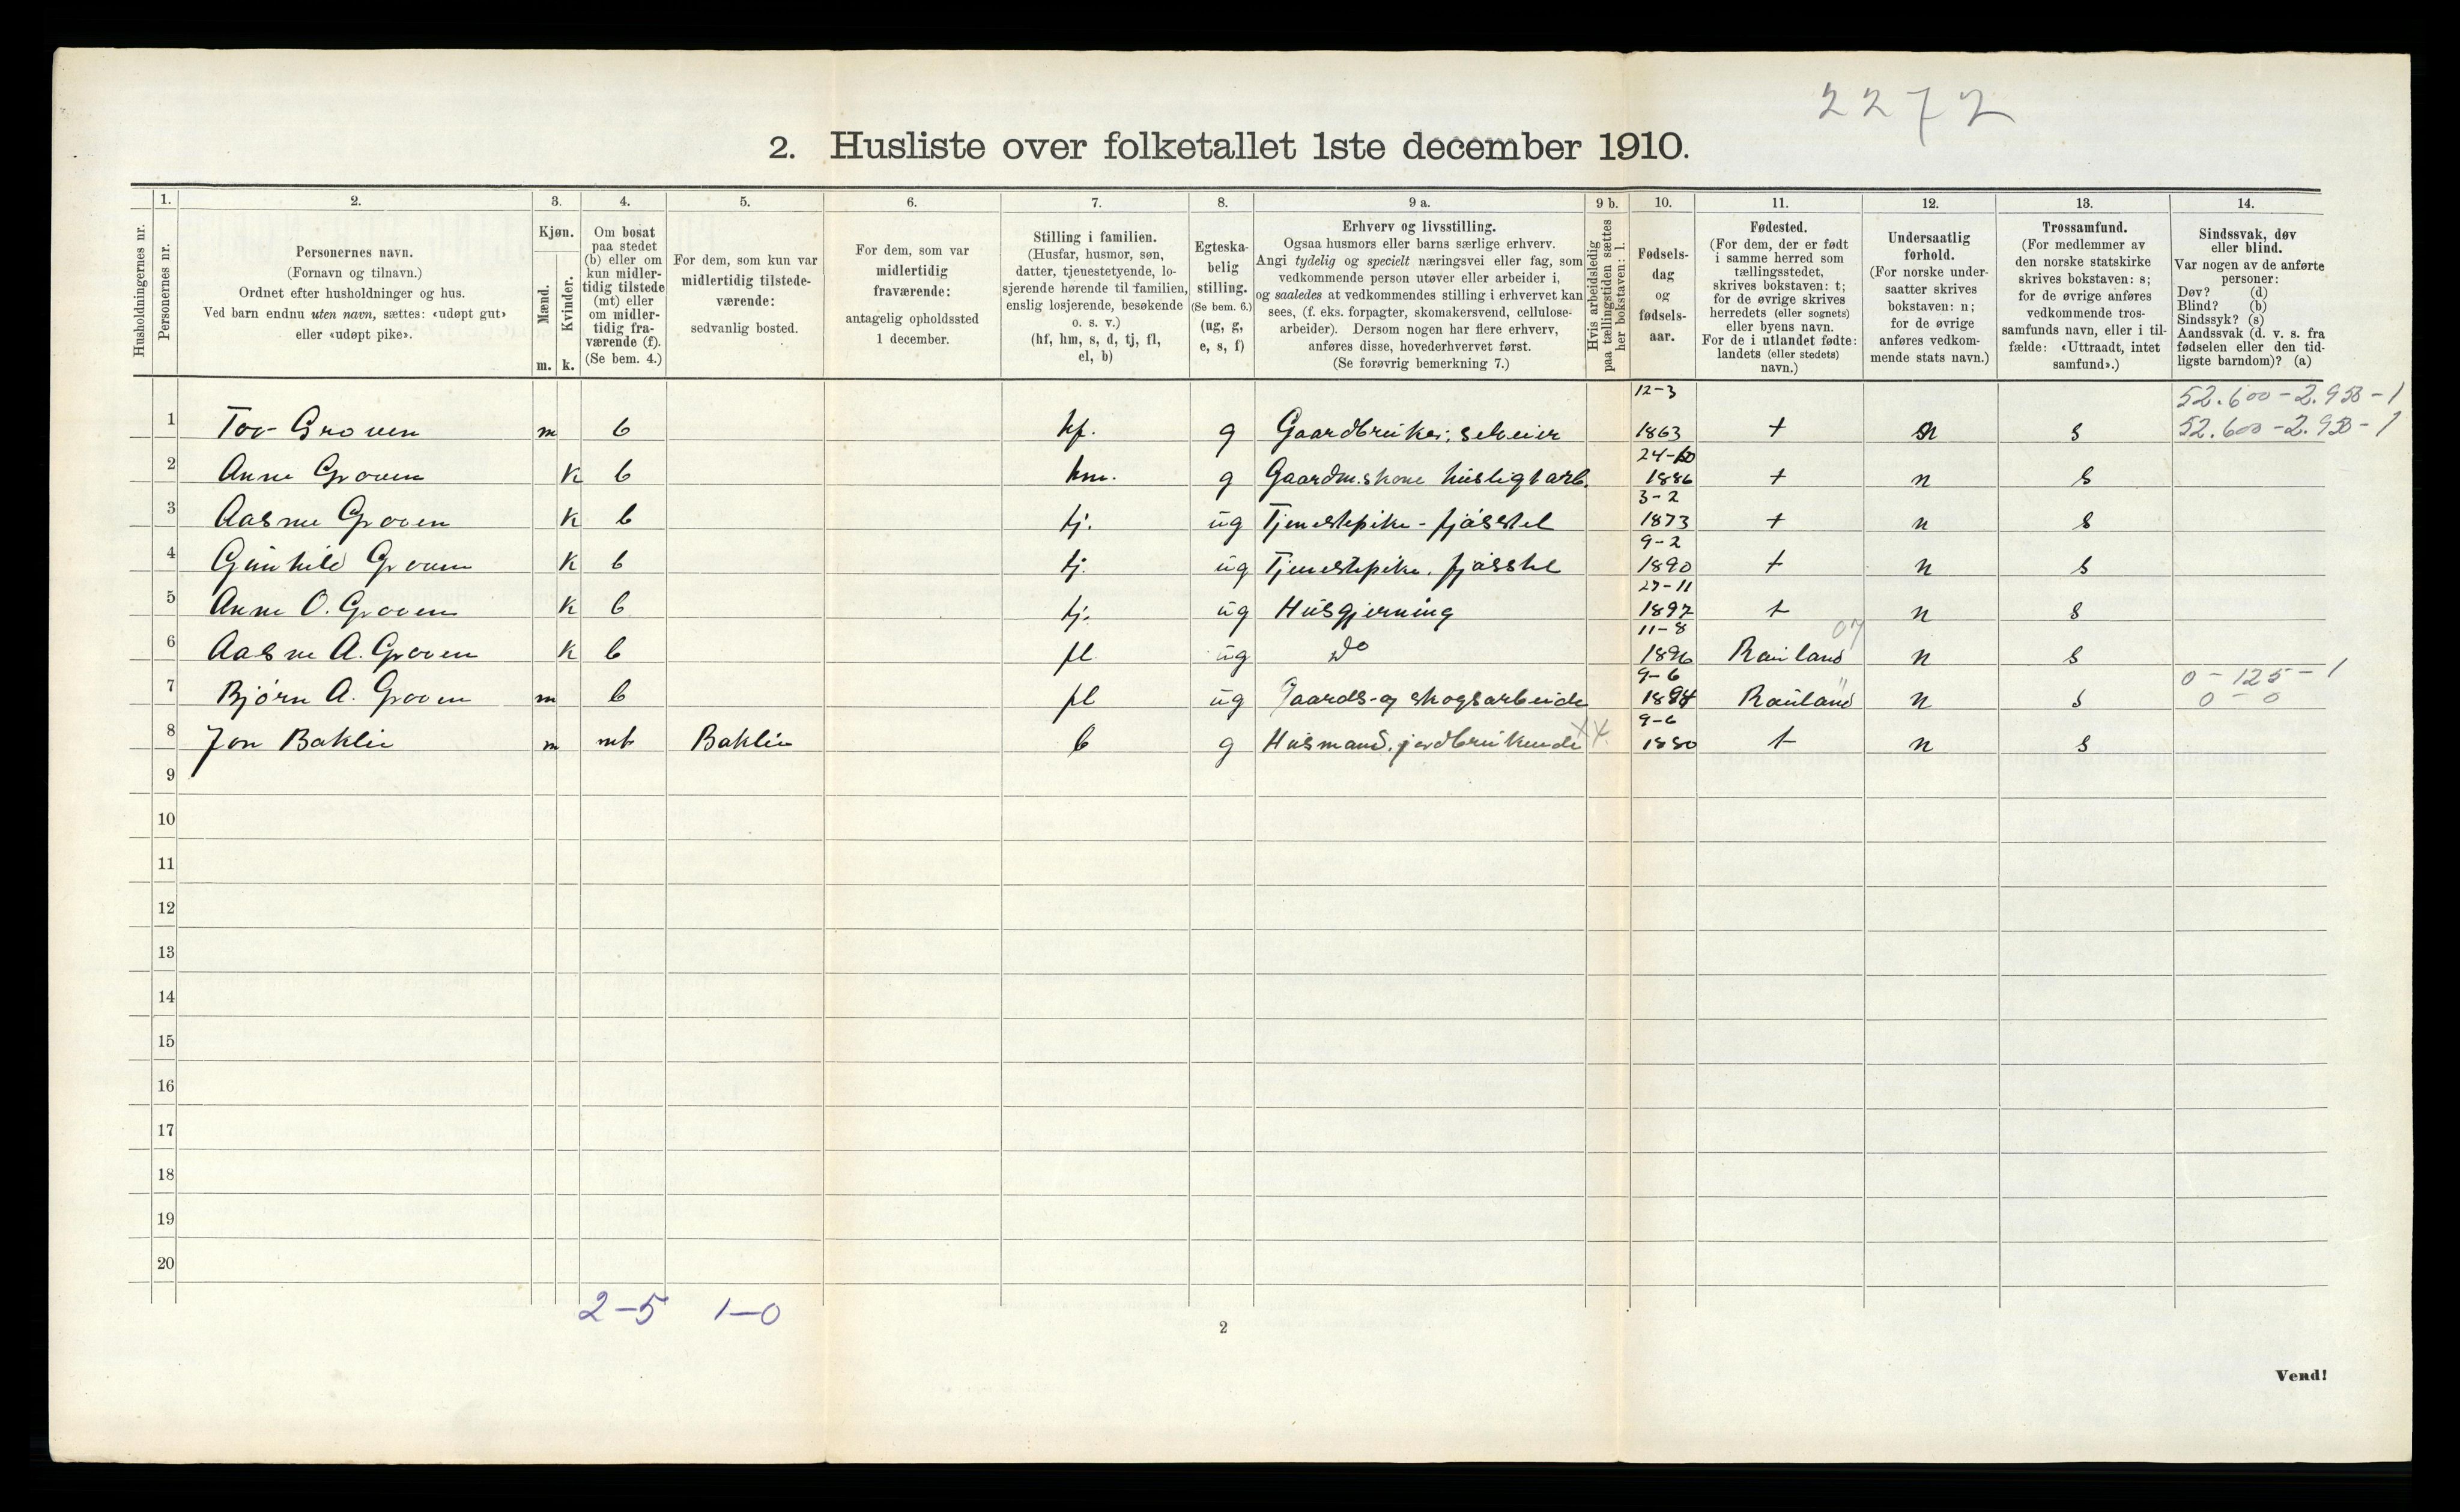 2272
2. Husliste over folketallet 1ste december 1910.
1. 2. 3. 4. 5. 6. 7. 8. 9 a. 9 b. 10. 11. 12. 13. 14.
Husholdningernes nr.
Personernes nr.
Personernes navn.
(Fornavn og tilnavn.)
Ordnet efter husholdninger og hus.
Ved barn endnu uten navn, sættes: «udøpt gut»
eller «udøpt pike».
Kjøn.
Mænd.
Kvinder.
m. k.
Om bosat
paa stedet
(b) eller om
kun midler-
tidig tilstede
(mt) eller
om midler-
tidig fra-
værende (f).
(Se bem. 4.)
For dem, som kun var
midlertidig tilstede-
værende:
sedvanlig bosted.
For dem, som var
midlertidig
fraværende:
antagelig opholdssted
1 december.
Stilling i familien.
(Husfar, husmor, søn,
datter, tjenestetyende, lo-
sjerende hørende til familien,
enslig losjerende, besøkende
o. s. v.)
(hf, hm, s, d, tj, fl,
el, b)
Egteska-
belig
stilling.
(Se bem. 6.)
(ug, g,
e, s, f)
Erhverv og livsstilling.
Ogsaa husmors eller barns særlige erhverv.
Angi tydelig og specielt næringsvei eller fag, som
vedkommende person utøver eller arbeider i,
og saaledes at vedkommendes stilling i erhvervet kan
sees, (f. eks. forpagter, skomakersvend, cellulose-
arbeider). Dersom nogen har flere erhverv,
anføres disse, hovederhvervet først.
(Se forøvrig bemerkning 7.)
Hvis arbeidsledig
paa tællingstiden sættes
her bokstaven: l.
Fødsels-
dag
og
fødsels-
aar.
Fødested.
(For dem, der er født
i samme herred som
tællingsstedet,
skrives bokstaven: t;
for de øvrige skrives
herredets (eller sognets)
eller byens navn.
For de i utlandet fødte:
landets (eller stedets)
navn.)
Undersaatlig
forhold.
(For norske under-
saatter skrives
bokstaven: n;
for de øvrige
anføres vedkom-
mende stats navn.)
Trossamfund.
(For medlemmer av
den norske statskirke
skrives bokstaven: s;
for de øvrige anføres
vedkommende tros-
samfunds navn, eller i til-
fælde: «Uttraadt, intet
samfund».)
Sindssvak, døv
eller blind.
Var nogen av de anførte
personer:
Døv? (d)
Blind? (b)
Sindssyk? (s)
Aandssvak (d. v. s. fra
fødselen eller den tid-
ligste barndom)? (a)
12-3 52.600-2.950-1
1 Tov Groven m b hf. g Gaardbruker; selveier 1863 t n s 52.600-2.950-1
24-10
2 Anne Groven K b hm. g Gaardm.skone husligt arb. 1886 t n s
3-2
3 Aasne Groven K b tj. ug Tjenestepike - fjösstel 1873 t n s
9-2
4 Gunhild Groven K b tj. ug Tjenestepike. fjösstel 1890 t n s
27-11
5 Anne O. Groven K b tj. ug Husgjerning 1892 t n s
11-8 07
6 Aasne A. Groven K b fl. ug do 1896 Rauland n s
9-6 0-125-1
7 Bjørn A. Groven m b fl ug Gaards-og skogsarbeide 1894 Rauland n s 0-0
9-6
8 Jon Baklie m mt Baklie b g Husmand, jordbrukende xx. 1880 t n s
9
10
11
12
13
14
15
16
17
18
19
20
2-5 1-0
2
Vend!